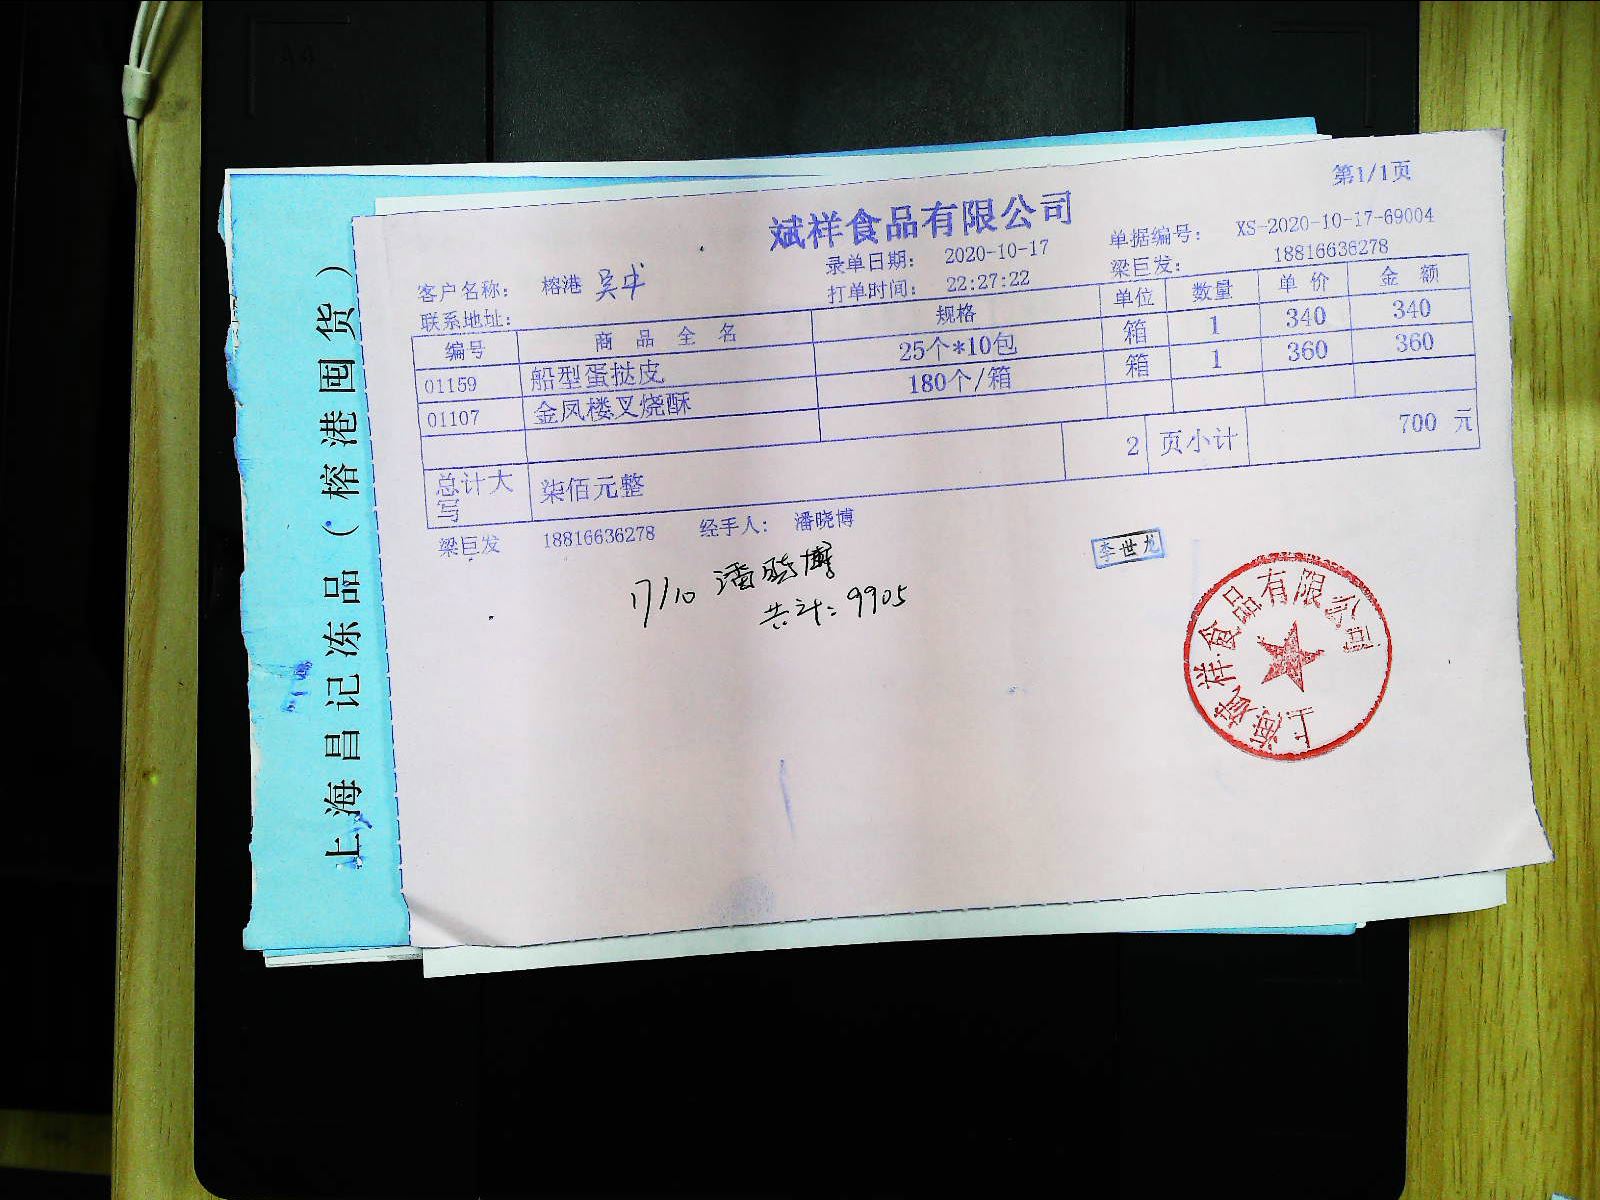 第1/1页
斌祥食品有限公司
录单日期: 2020-10-17 单据编号: XS-2020-10-17-69004
客户名称: 榕港 打单时间: 22:27:22 梁巨发: 18816636278
联系地址:
编号 商品全名 规格 单位 数量 单价 金额
01159 船型蛋挞皮 25个*10包 箱 1 340 340
01107 金凤楼叉烧酥 180个/箱 箱 1 360 360
总计大写 柒佰元整 2 页小计 700 元
梁巨发 18816636278 经手人: 潘晓博
17/10 潘晓博
共计: 9905
李世龙
上海斌祥食品有限公司
上海昌记冻品（榕港囤货）